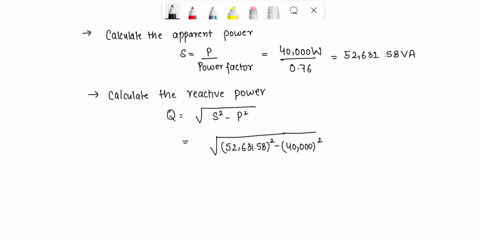 → Calculate the apparent power
S = P / Power factor = 40,000W / 0.76 = 52,631.58 VA
→ Calculate the reactive power
Q = √(S² - P²)
= √((52,631.58)² - (40,000)²)